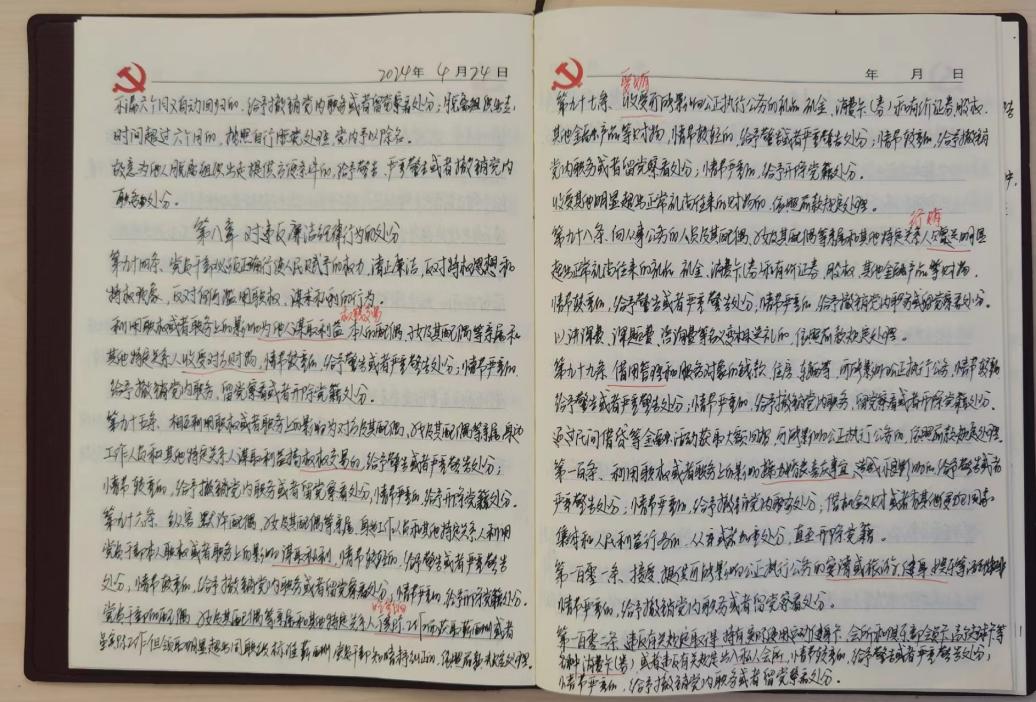 2024年 4月24日
不满六个月又自动回归的,给予撤销党内职务或者留党察看处分;脱离组织出走
时间超过六个月的,按照自行脱党处理,党内予以除名。
故意为他人脱离组织出走提供方便条件的,给予警告、严重警告或者撤销党内
职务处分。
第八章 对违反廉洁纪律行为的处分
第九十四条、党员干部必须正确行使人民赋予的权力,清正廉洁,反对特权思想和
特权现象,反对任何滥用职权、谋求私利的行为。
权钱交易
利用职权或者职务上的影响为他人谋取利益,本人的配偶、子女及其配偶等亲属和
其他特定关系人收受对方财物,情节较重的,给予警告或者严重警告处分;情节严重的,
给予撤销党内职务、留党察看或者开除党籍处分。
第九十五条、相互利用职权或者职务上的影响为对方及其配偶、子女及其配偶等亲属、身边
工作人员和其他特定关系人谋取利益搞权权交易的,给予警告或者严重警告处分;
情节较重的,给予撤销党内职务或者留党察看处分;情节严重的,给予开除党籍处分。
第九十六条、纵容、默许配偶、子女及其配偶等亲属、身边工作人员和其他特定关系人利用
党员干部本人职权或者职务上的影响谋取私利,情节较轻的,给予警告或者严重警告
处分;情节较重的,给予撤销党内职务或者留党察看处分;情节严重的,给予开除党籍处分。
吃空饷
党员干部的配偶、子女及其配偶等亲属和其他特定关系人不实际工作而获取薪酬或者
虽实际工作但领取明显超出同职级标准薪酬,党员干部知情未予纠正的,依照前款规定处理。
年 月 日
受贿
第九十七条、收受可能影响公正执行公务的礼品、礼金、消费卡(券)和有价证券、股权、
其他金融产品等财物,情节较轻的,给予警告或者严重警告处分;情节较重的,给予撤销
党内职务或者留党察看处分;情节严重的,给予开除党籍处分。
收受其他明显超出正常礼尚往来的财物的,依照前款规定处理。
行贿
第九十八条、向从事公务的人员及其配偶、子女及其配偶等亲属和其他特定关系人赠送明显
超出正常礼尚往来的礼品、礼金、消费卡(券)和有价证券、股权、其他金融产品等财物,
情节较重的,给予警告或者严重警告处分;情节严重的,给予撤销党内职务或留党察看处分。
以讲课费、课题费、咨询费等名义变相送礼的,依照前款规定处理。
第九十九条、借用管理和服务对象的钱款、住房、车辆等,可能影响公正执行公务,情节较重的,
给予警告或者严重警告处分;情节严重的,给予撤销党内职务、留党察看或者开除党籍处分。
通过民间借贷等金融活动获取大额回报,可能影响公正执行公务的,依照前款规定处理。
第一百条、利用职权或者职务上的影响操办婚丧喜庆事宜,造成不良影响的,给予警告或者
严重警告处分;情节严重的,给予撤销党内职务处分;借机敛财或者有其他侵犯国家、
集体和人民利益行为的,从重或者加重处分,直至开除党籍。
第一百零一条、接受、提供可能影响公正执行公务的宴请或者旅游、健身、娱乐等活动安排,
情节严重的,给予撤销党内职务或者留党察看处分。
第一百零二条、违反有关规定取得、持有、实际使用运动健身卡、会所和俱乐部会员卡、高尔夫球卡等
各种消费卡(券)或者违反有关规定出入私人会所,情节较重的,给予警告或者严重警告处分;
情节严重的,给予撤销党内职务或者留党察看处分。